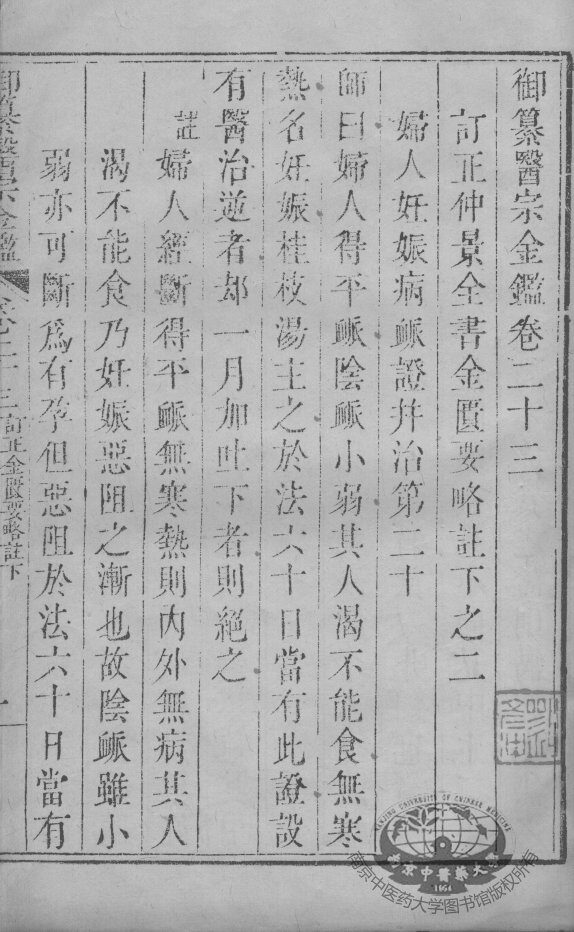 御纂醫宗金鑑卷二十三
訂正仲景全書金匱要略註下之二
婦人妊娠病脈證并治第二十
師曰婦人得平脈陰脈小弱其人渴不能食無寒
熱名妊娠桂枝湯主之於法六十日當有此證設
有醫治逆者却一月加吐下者則絕之
註
婦人經斷得平脈無寒熱則內外無病其人
渴不能食乃妊娠惡阻之漸也故陰脈雖小
弱亦可斷為有孕但惡阻於法六十日當有
御纂醫宗金鑑
卷二十三 訂正金匱要略註下
一
NANJING UNIVERSITY OF CHINESE MEDICINE
南京中醫藥大學
1954
南京中医药大学图书馆版权所有